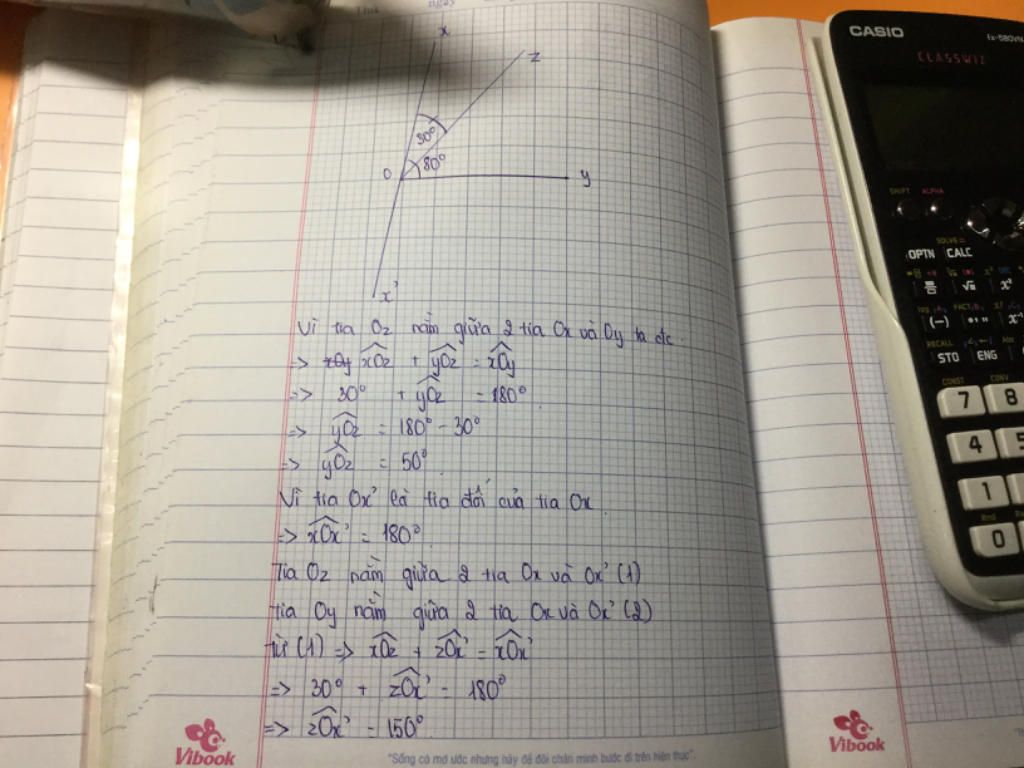 Thứ
ngày
x
z
30°
O
80°
y
x'
Vì tia Oz nằm giữa 2 tia Ox và Oy ta đc
=> xOy xOz + yOz = xOy
=> 30° + yOz = 180°
=> yOz = 180° - 30°
=> yOz = 50°
Vì tia Ox' là tia đối của tia Ox
=> xOx' = 180°
Tia Oz nằm giữa 2 tia Ox và Ox' (1)
tia Oy nằm giữa 2 tia Ox và Ox' (2)
từ (1) => xOz + zOx' = xOx'
=> 30° + zOx' = 180°
=> zOx' = 150°
Vibook
"Sống có mơ ước nhưng hãy để đôi chân mình bước đi trên hiện thực".
Vibook
CASIO
fx-580VN
CLASSWIZ
SHIFT ALPHA
SOLVE =
OPTN CALC
(-)
RECALL
STO ENG
CONST CONV
7 8
4 5
1
0